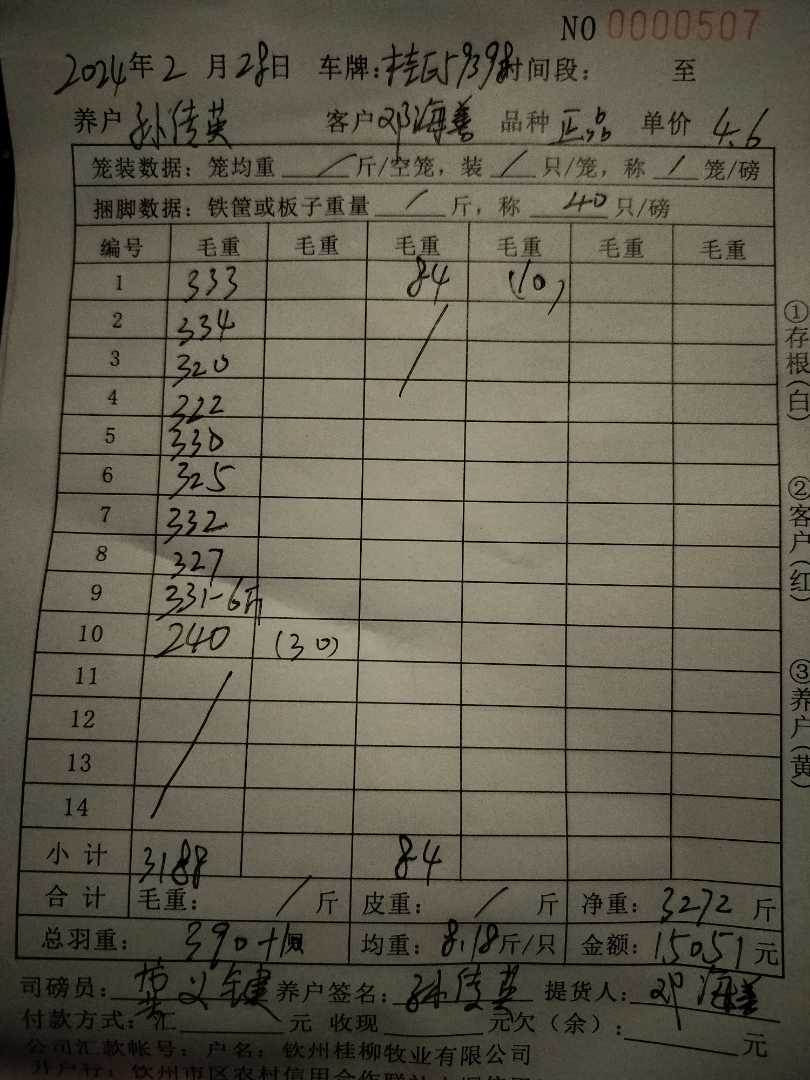 NO 0000507
2024年2月28日 车牌:桂E59398时间段: 至
养户 孙传英 客户 邓海善 品种 正品 单价 4.6
笼装数据: 笼均重 / 斤/空笼, 装 / 只/笼, 称 / 笼/磅
捆脚数据: 铁筐或板子重量 / 斤, 称 40 只/磅
编号 毛重 毛重 毛重 毛重 毛重 毛重
1 333 84 (10)
2 334 /
3 320
4 322
5 330
6 325
7 332
8 327
9 331-6斤
10 240 (30)
11 /
12
13
14
小计 3188 84
合计 毛重: / 斤 皮重: / 斤 净重: 3272 斤
总羽重: 390+10 均重: 8.18斤/只 金额: 15051元
司磅员: 黄义键 养户签名: 孙传英 提货人: 邓海善
付款方式: 汇 元 收现 元欠(余): / 元
公司汇款帐号: 户名: 钦州桂柳牧业有限公司
开户行: 钦州市区农村信用合作联社
①存根(白)
②客户(红)
③养户(黄)